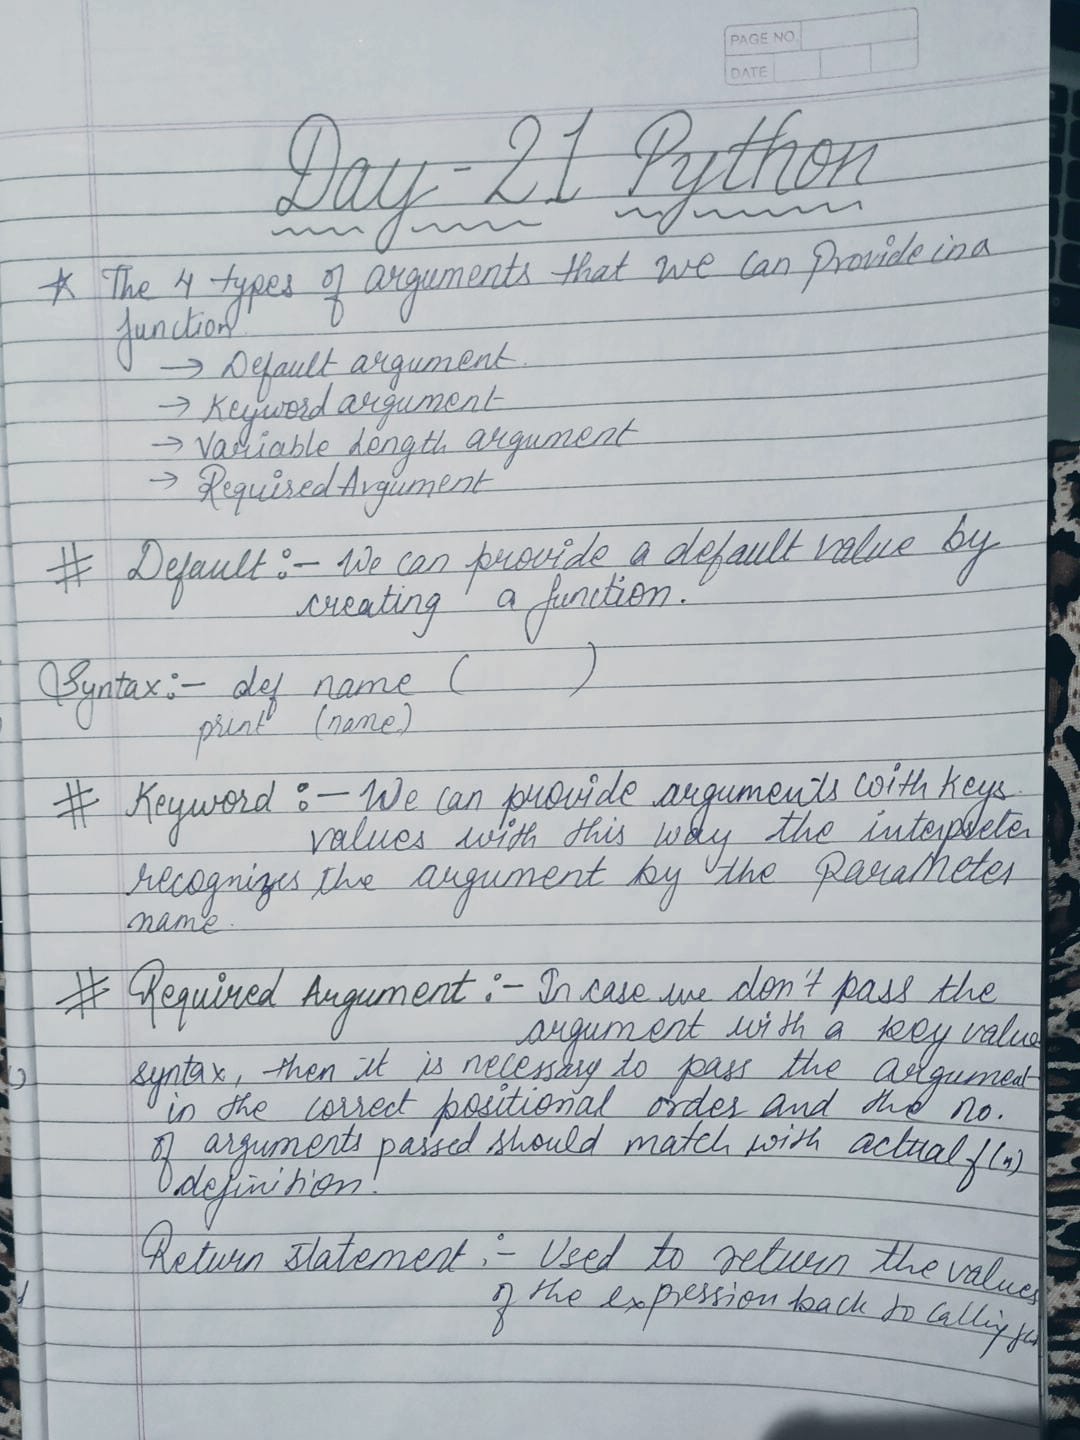 PAGE NO.
DATE
Day-21 Python
* The 4 types of arguments that we can Provide in a
function
→ Default argument.
→ Keyword argument
→ Variable Length argument
→ Required Argument
# Default :- We can provide a default value by
creating a function.
Syntax :- def name ( )
print (name)
# Keyword :- We can provide arguments with keys
values with this way the interpreter
recognizes the argument by the Parameter
name.
# Required Argument :- In case we don't pass the
argument with a key value
syntax, then it is necessary to pass the argument
in the correct positional order and the no.
of arguments passed should match with actual f(n)
definition.
Return Statement :- Used to return the values
of the expression back to calling